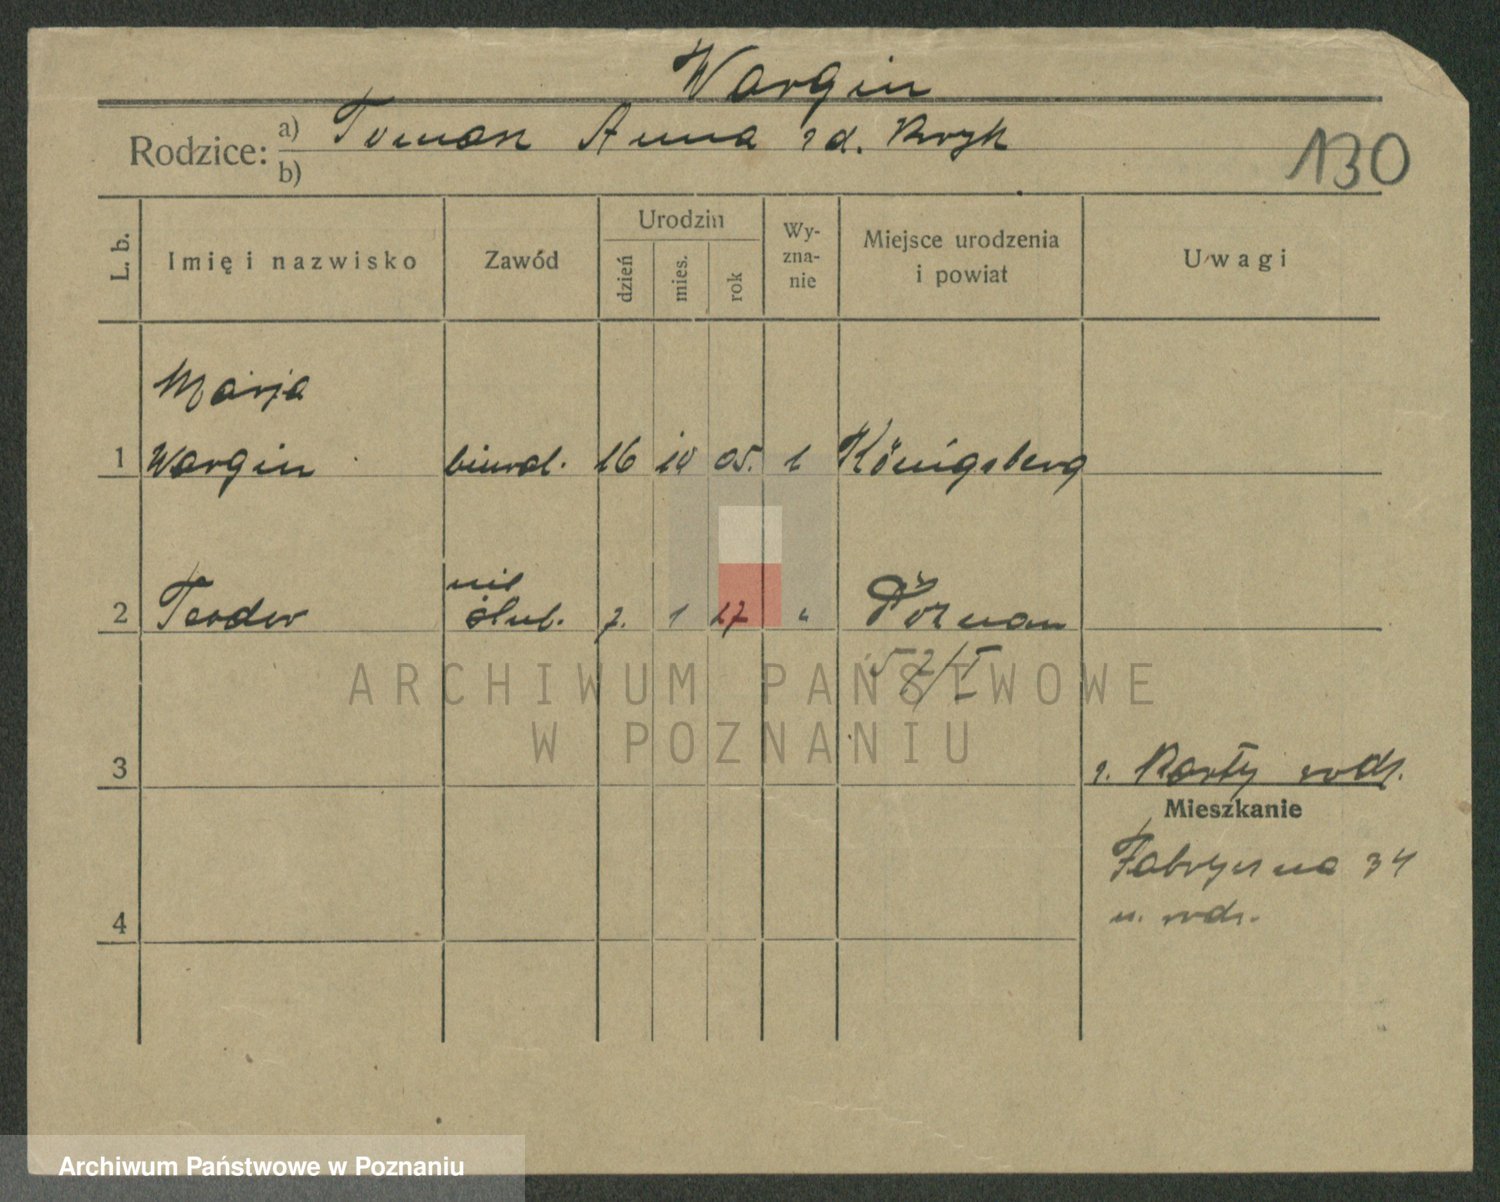 Wargin
Rodzice: a) Tomasz Anna zd. Kryk
b)
130
L. b. Imię i nazwisko Zawód Urodzin dzień mies. rok Wy-zna-nie Miejsce urodzenia i powiat Uwagi
Marja
1 Wargin biural. 16 10 05. 1 Königsberg
nie
2 Teodor ślub. 7. 1 27 " Poznan
57/I
3 z. Karty rodz.
Mieszkanie
Fabryczna 34
4 u. rodz.
ARCHIWUM PAŃSTWOWE
W POZNANIU
Archiwum Państwowe w Poznaniu